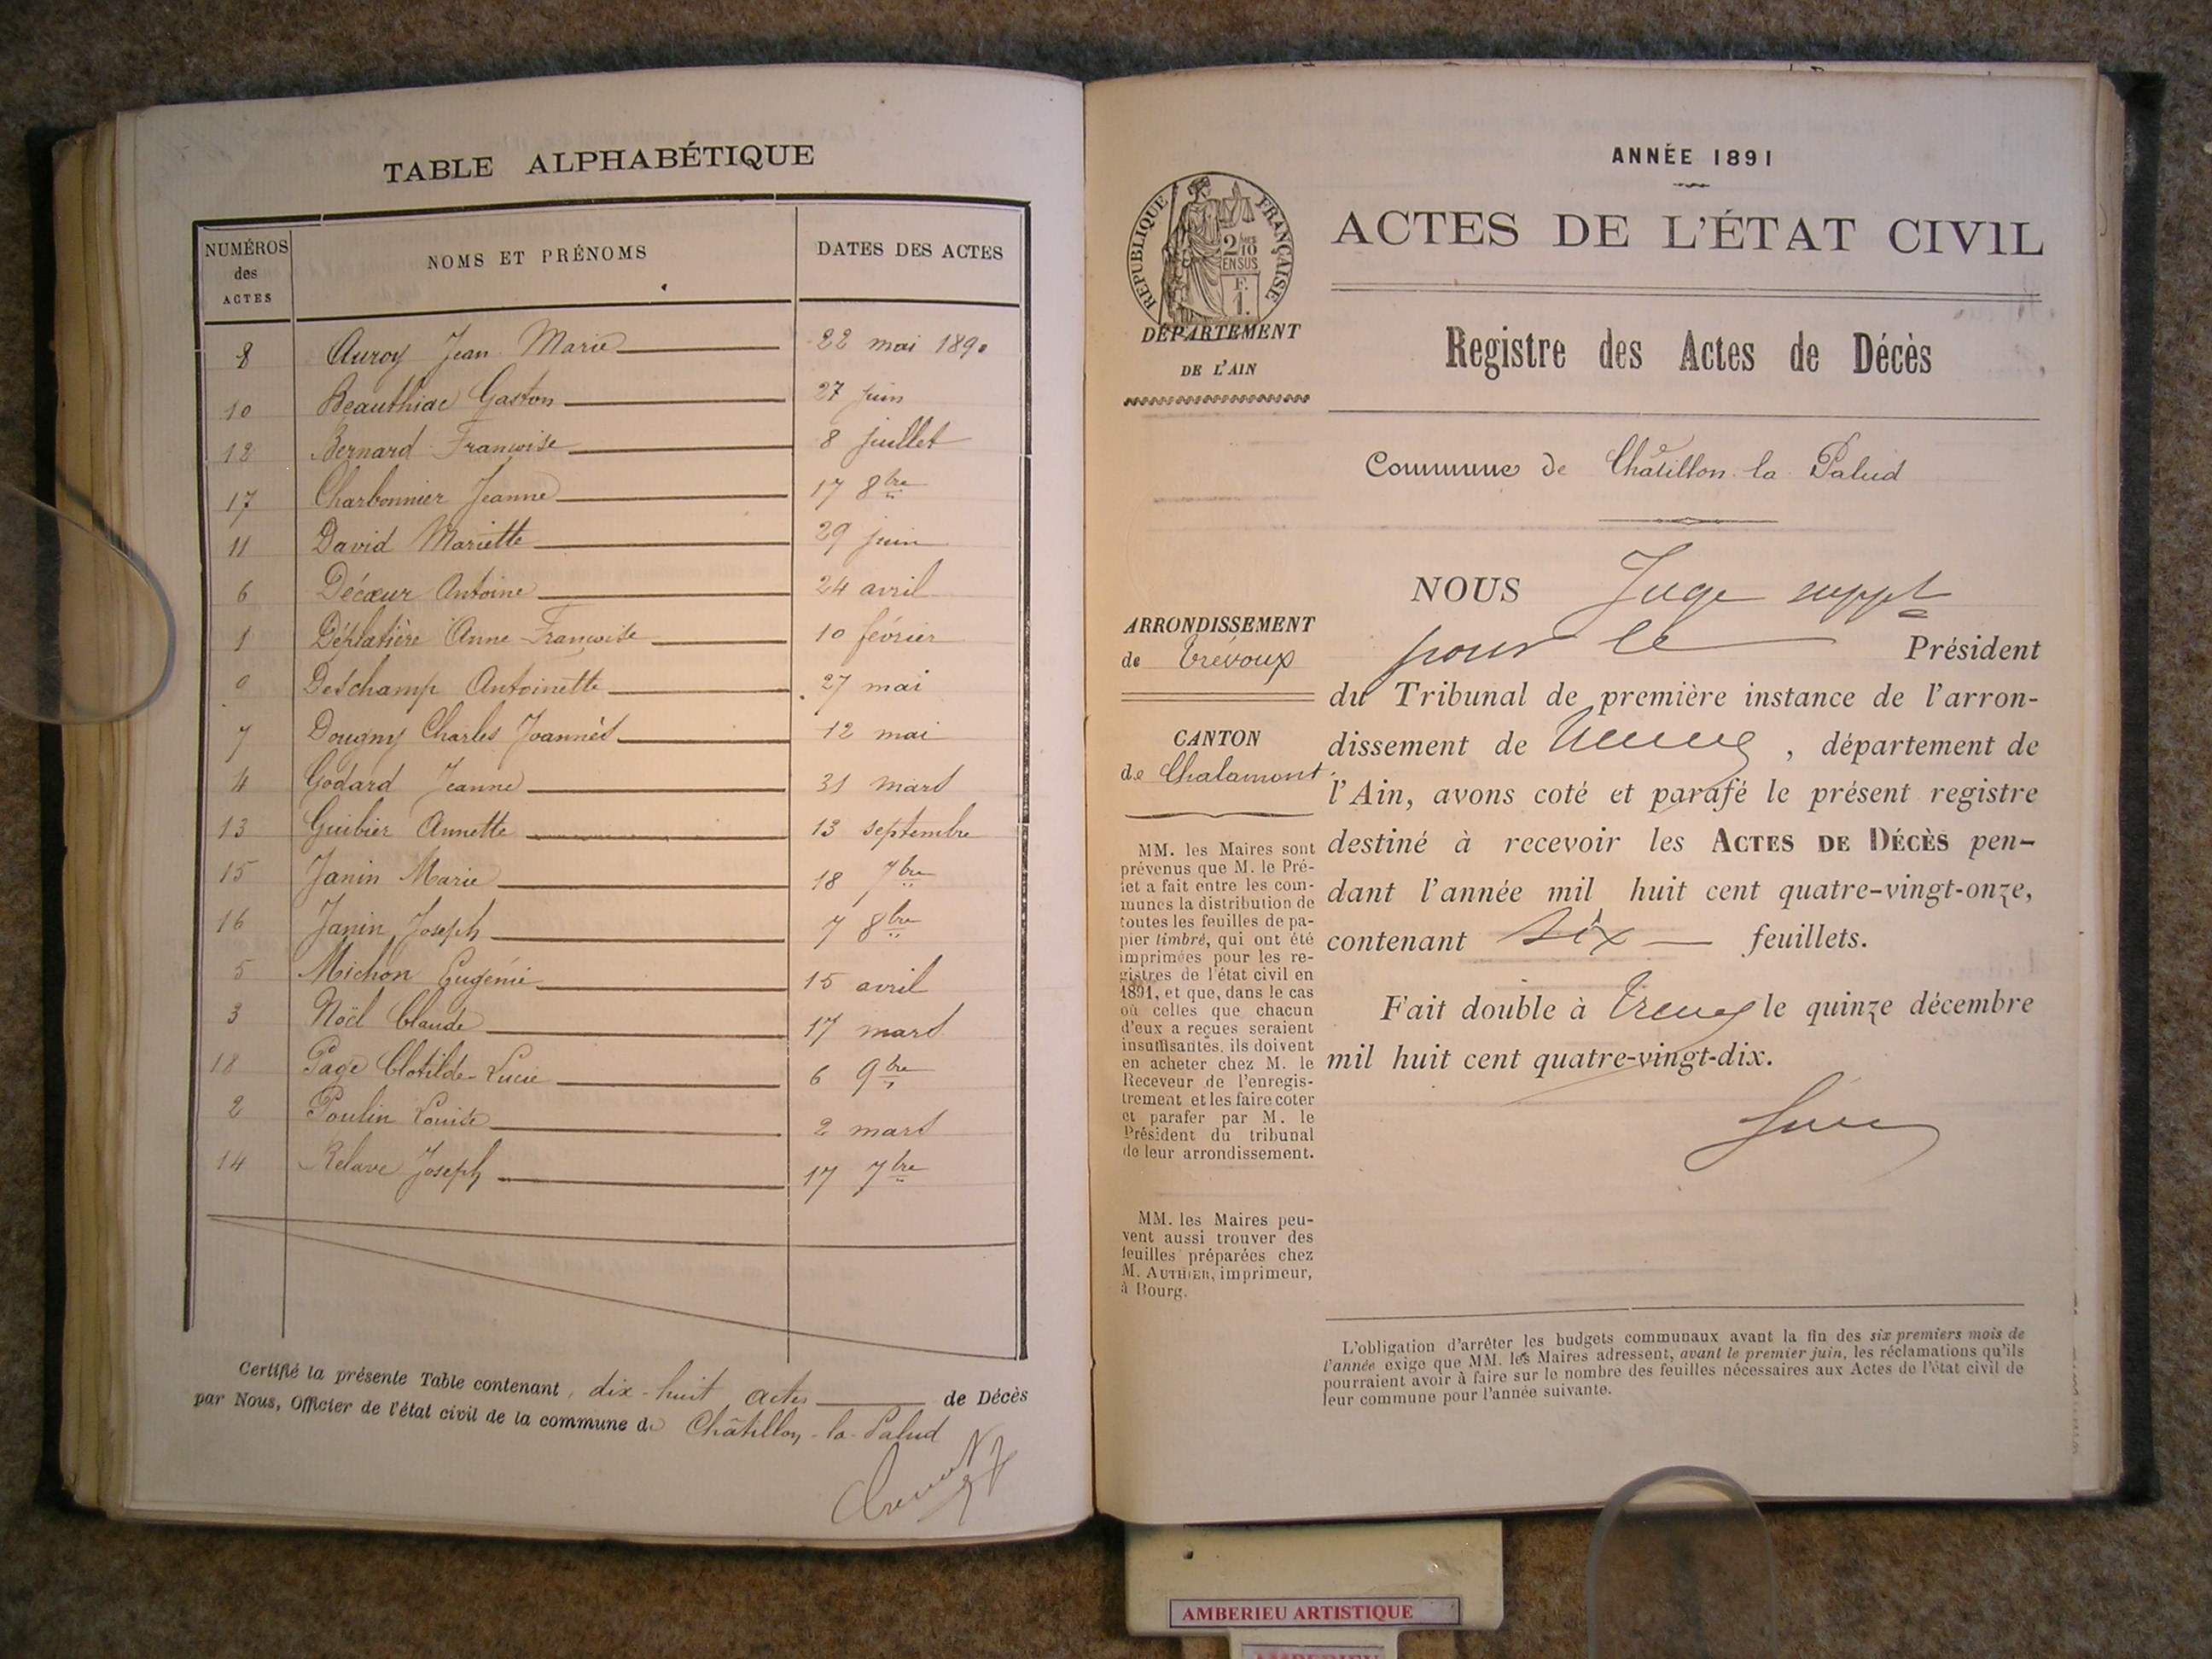 TABLE ALPHABÉTIQUE
NUMÉROS des ACTES NOMS ET PRÉNOMS DATES DES ACTES
8 Auroy Jean Marie 22 mai 1890
10 Beauthiac Gaston 27 juin
12 Bernard Françoise 8 juillet
17 Charbonnier Jeanne 17 8bre
11 David Mariette 29 juin
6 Décœur Antoine 24 avril
1 Déplatière Anne Françoise 10 février
9 Deschamp Antoinette 27 mai
7 Dougny Charles Joannès 12 mai
4 Godard Jeanne 31 mars
13 Guibier Annette 13 septembre
15 Janin Marie 18 7bre
16 Janin Joseph 7 8bre
5 Michon Eugénie 15 avril
3 Noël Claude 17 mars
18 Page Clotilde-Lucie 6 9bre
2 Poulin Louise 2 mars
14 Relave Joseph 17 7bre
Certifié la présente Table contenant dix-huit actes de Décès
par Nous, Officier de l'état civil de la commune de Châtillon-la-Palud
ANNÉE 1891
RÉPUBLIQUE FRANÇAISE
2/10 EN SUS
F. 1.
ACTES DE L'ÉTAT CIVIL
DÉPARTEMENT
DE L'AIN
Registre des Actes de Décès
Commune de Châtillon-la-Palud
ARRONDISSEMENT
de Trévoux
CANTON
de Chalamont
MM. les Maires sont
prévenus que M. le Pré-
fet a fait entre les com-
munes la distribution de
toutes les feuilles de pa-
pier timbré, qui ont été
imprimées pour les re-
gistres de l'état civil en
1891, et que, dans le cas
où celles que chacun
d'eux a reçues seraient
insuffisantes, ils doivent
en acheter chez M. le
Receveur de l'enregis-
trement et les faire coter
et parafer par M. le
Président du tribunal
de leur arrondissement.
MM. les Maires peu-
vent aussi trouver des
feuilles préparées chez
M. AUTHIER, imprimeur,
à Bourg.
NOUS Juge suppt
pour le Président
du Tribunal de première instance de l'arron-
dissement de Trévoux, département de
l'Ain, avons coté et parafé le présent registre
destiné à recevoir les ACTES DE DÉCÈS pen-
dant l'année mil huit cent quatre-vingt-onze,
contenant six feuillets.
Fait double à Trévoux le quinze décembre
mil huit cent quatre-vingt-dix.
L'obligation d'arrêter les budgets communaux avant la fin des six premiers mois de
l'année exige que MM. les Maires adressent, avant le premier juin, les réclamations qu'ils
pourraient avoir à faire sur le nombre des feuilles nécessaires aux Actes de l'état civil de
leur commune pour l'année suivante.
AMBERIEU ARTISTIQUE
AMBERIEU